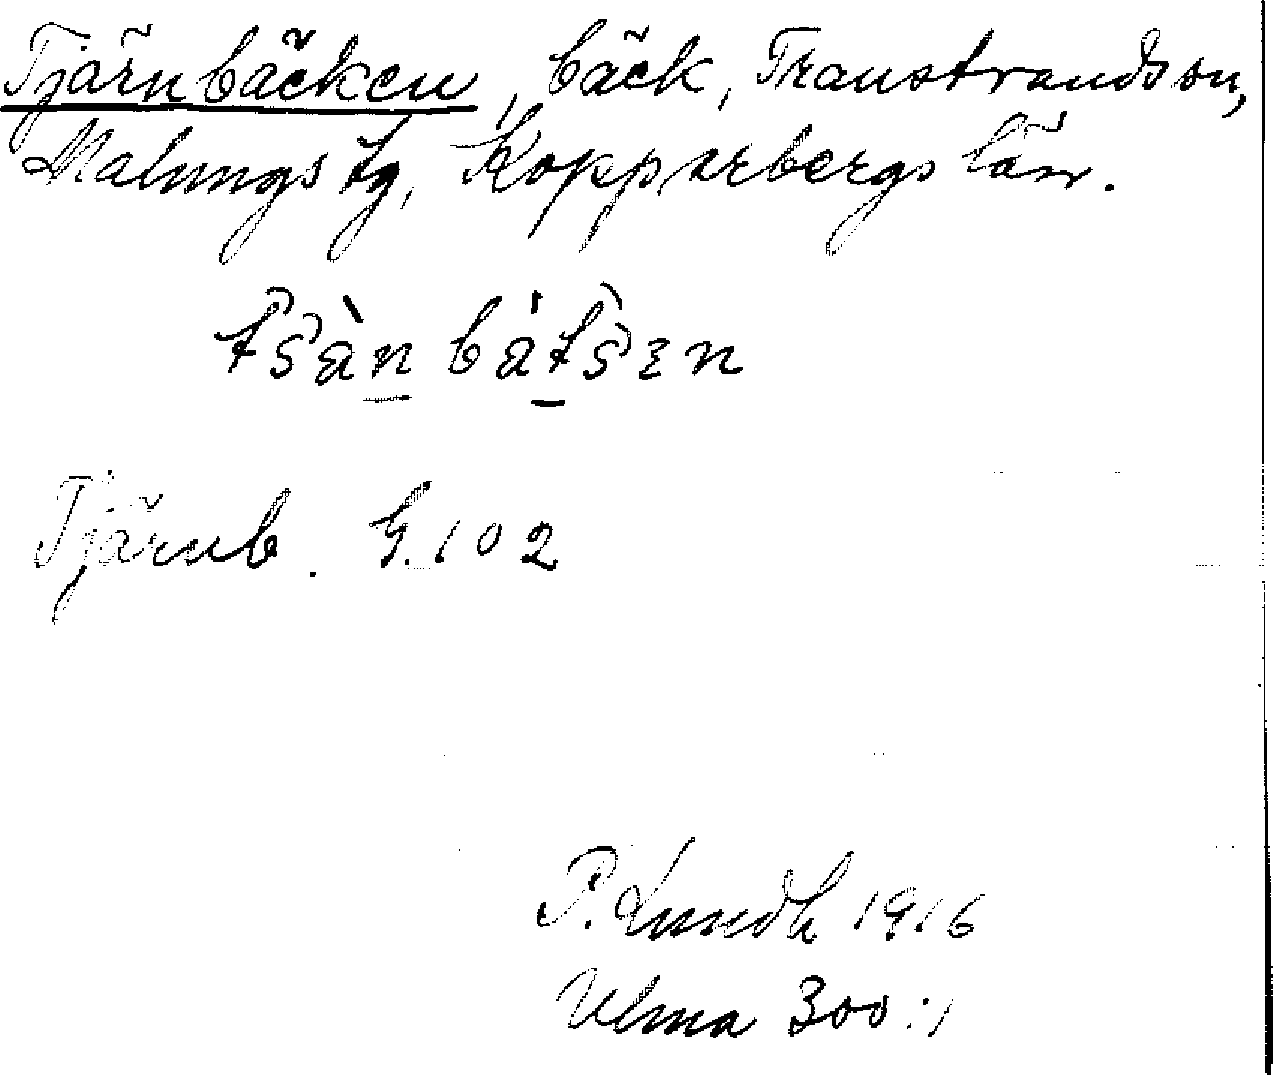 Tjärnbäcken, bäck, Transtrands sn,
Malungs tg, Kopparbergs län.
tsàn bátsen
Tjärnb. G.102
P. Lundh 1916
Ulma 300:1